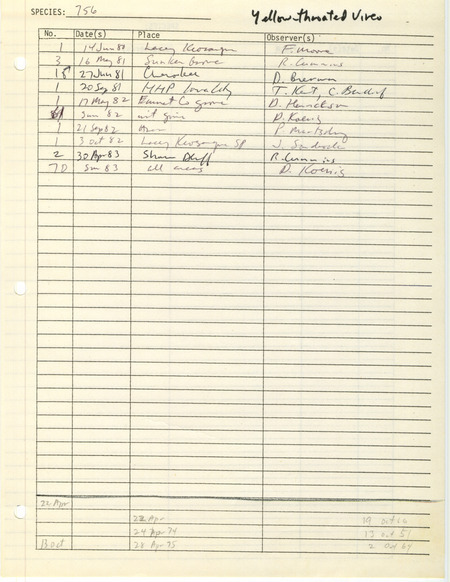 SPECIES: 756 Yellow-throated Vireo
No. Date(s) Place Observer(s)
1 14 Jun 80 Lacey Keosauqua F. Moore
3 16 May 81 Sunken Grove R. Cummins
15 27 Jun 81 Cherokee D. Bierman
1 20 Sep 81 HHP Iowa City T. Kent, C. Bendorf
1 17 May 82 Emmet Co D. Henrickson
Jun 82 not given D. Koenig
1 21 Sep 82 P.
1 3 Oct 82 Lacey Keosauqua SP J. Sandrock
2 30 Apr 83 Shawn Bluff R. Cummins
70 Jun 83 all areas D. Koenig
22 Apr
22 Apr 19 Oct
24 Apr 74 13 Oct 51
8 Oct 28 Apr 85 2 Oct 64